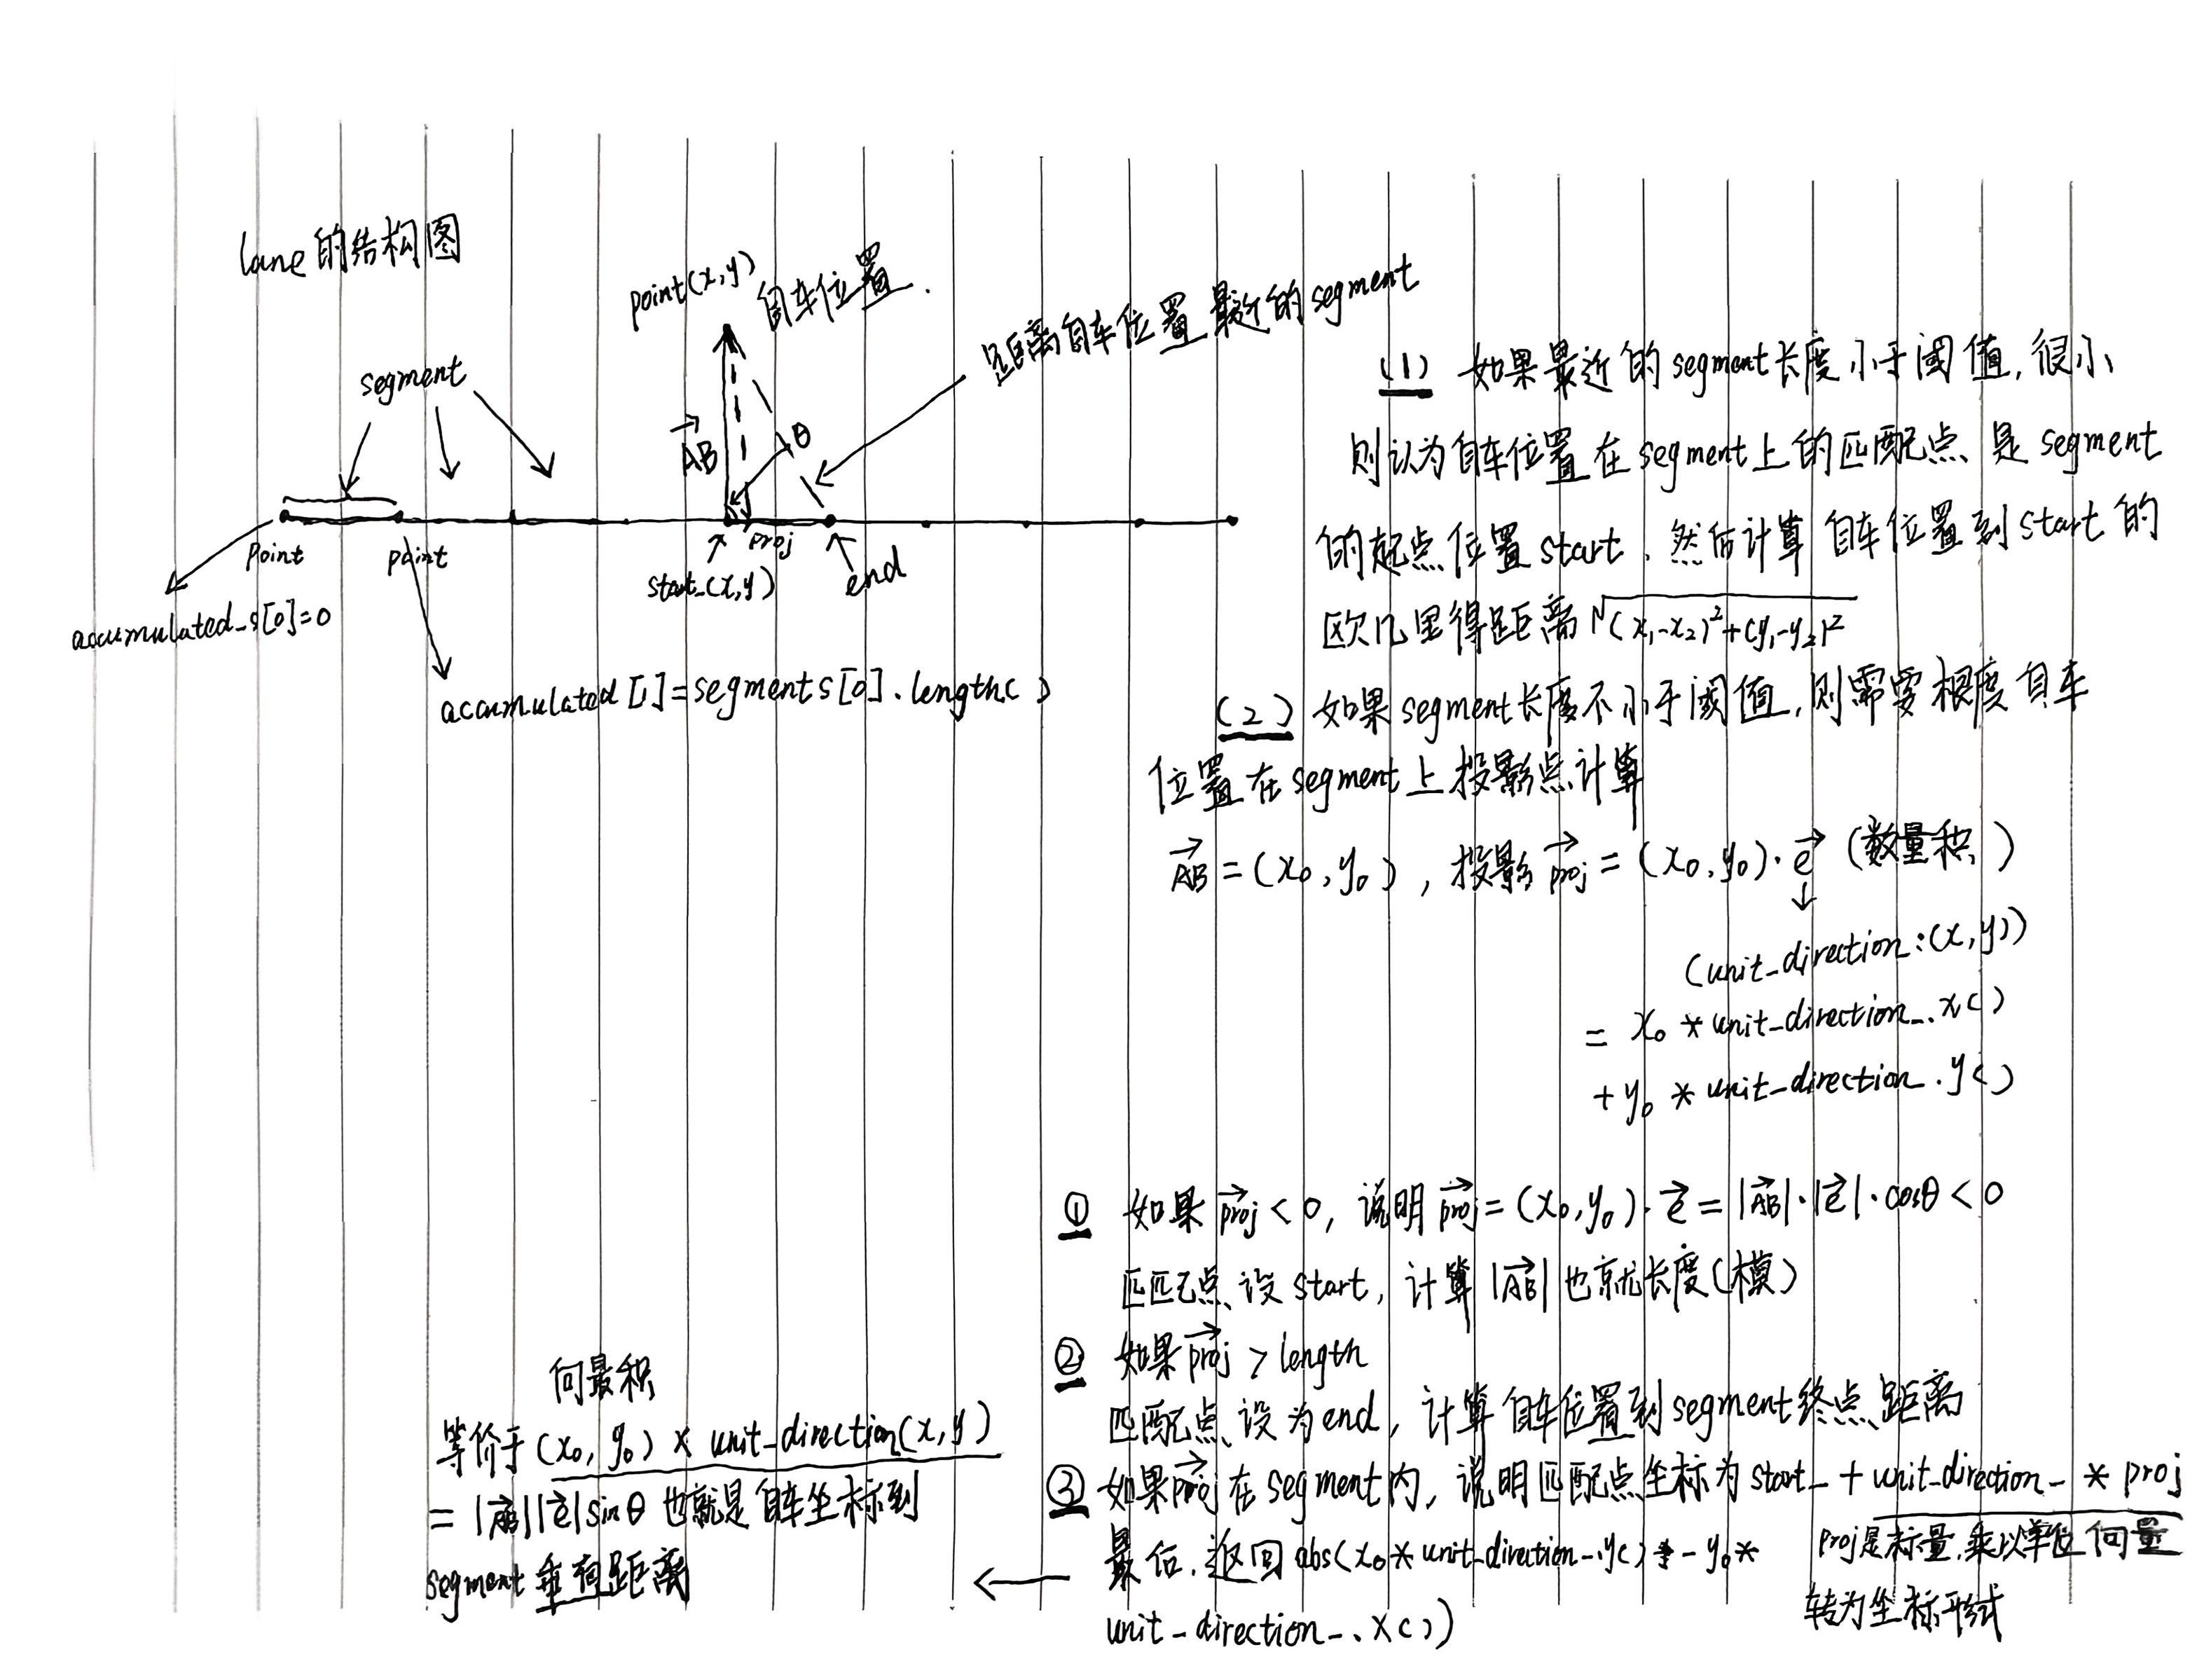 lane的结构图
point(x,y) 自车位置.
距离自车位置最近的segment
segment
AB
θ
point
point
proj
start_(x,y)
end
accumulated_s[0]=0
accumulated[1]=segments[0].length()
(1) 如果最近的segment长度小于阈值,很小
则认为自车位置在segment上的匹配点是segment
的起点位置start. 然后计算自车位置到start的
欧几里得距离√(x₁-x₂)²+(y₁-y₂)²
(2) 如果segment长度不小于阈值,则需要根度自车
位置在segment上投影点计算
AB=(x₀,y₀), 投影proj=(x₀,y₀)·e (数量积)
(unit_direction:(x,y))
= x₀*unit_direction_.x()
+y₀*unit_direction_.y()
① 如果proj<0, 说明proj=(x₀,y₀)·e=|AB|·|e|·cosθ<0
匹配点设start, 计算|AB|也就长度(模)
② 如果proj>length
匹配点设为end, 计算自车位置到segment终点距离
③ 如果proj在segment内, 说明匹配点坐标为start_+unit_direction_*proj
proj是标量,乘以单位向量
转为坐标形式
最后,返回abs(x₀*unit_direction_.y()-y₀*
unit_direction_.x())
向量积
等价于(x₀,y₀)×unit_direction(x,y)
=|AB||e|sinθ也就是自车坐标到
segment垂直距离